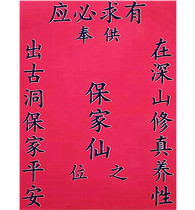 有求必应
供奉
在深山修真养性
保家仙
之位
出古洞保家平安